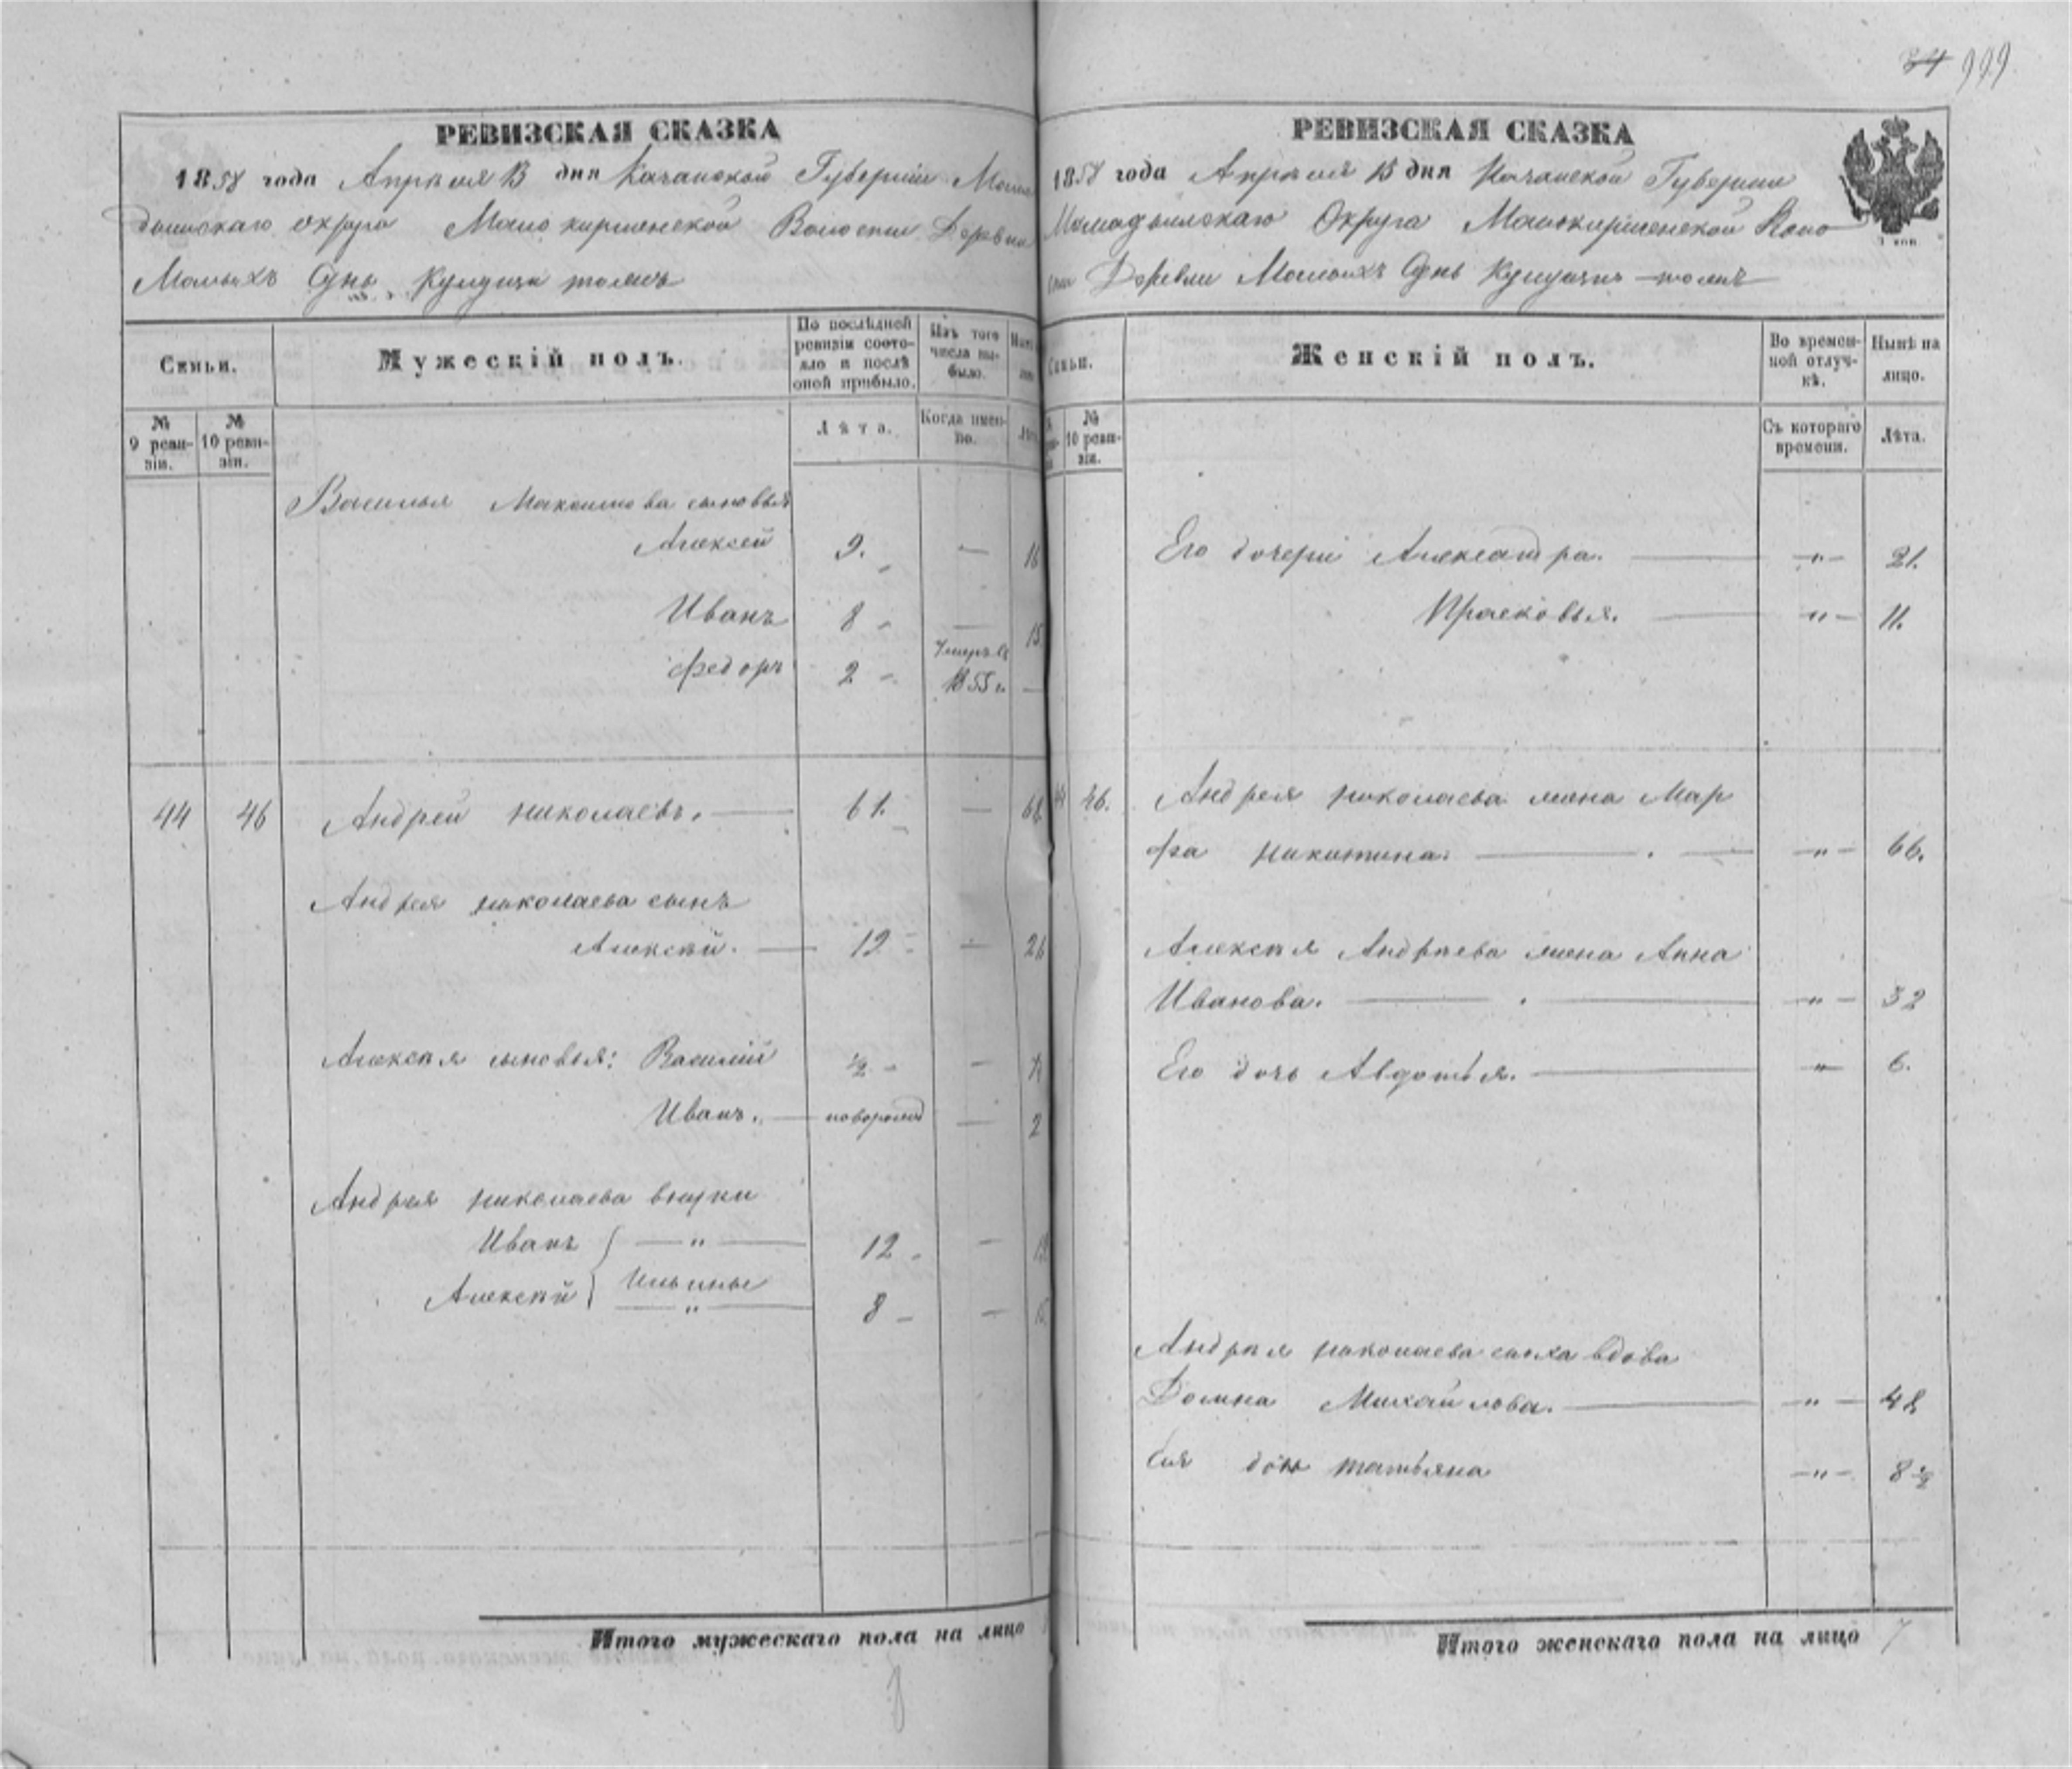 34 999
РЕВИЗСКАЯ СКАЗКА
1858 года Апрѣля 15 дня Казанской Губерніи Мама
дышскаго округа Мало кирменской Волости Деревни
Малыхъ
Семьи.
Мужескій полъ.
По послѣдней ревизіи состояло и послѣ оной прибыло.
Изъ того числа выбыло.
№ 9 ревизіи.
№ 10 ревизіи.
Лѣта.
Когда именно.
Василья Максимова сыновья
Алексей 9. — 16
Иванъ 8 — 15
Федоръ 2 Умеръ въ 1855 г. —
44 46 Андрей Николаевъ. 61. — 68
Андрея Николаева сынъ
Алексѣй. 19 — 26
Алексѣя сыновья: Василій 1/2 —
Иванъ. новорожд — 2
Андрея Николаева внуки
Иванъ — " — 12 —
Алексѣй Ильины 8 — 15
— " —
Итого мужескаго пола на лицо
РЕВИЗСКАЯ СКАЗКА
1858 года Апрѣля 15 дня Казанской Губерніи
Мамадышскаго Округа Малокирменской Воло
сти Деревни Малыхъ
1 коп.
Семьи.
Женскій полъ.
Во временной отлучкѣ.
Нынѣ на лицо.
№ 10 ревизіи.
Съ котораго времени.
Лѣта.
Его дочери Александра. — " — 21.
Прасковья. — " — 11.
44 46. Андрея Николаева жена Мар
фа Никитина. — " — 66.
Алексѣя Андрѣева жена Анна
Иванова. — " — 32
Его дочь Авдотья. — " — 6.
Андрѣя Николаева сноха вдова
Домна Михайлова. — " — 48
Ея дочь Татьяна — " — 8 1/2
Итого женскаго пола на лицо 7